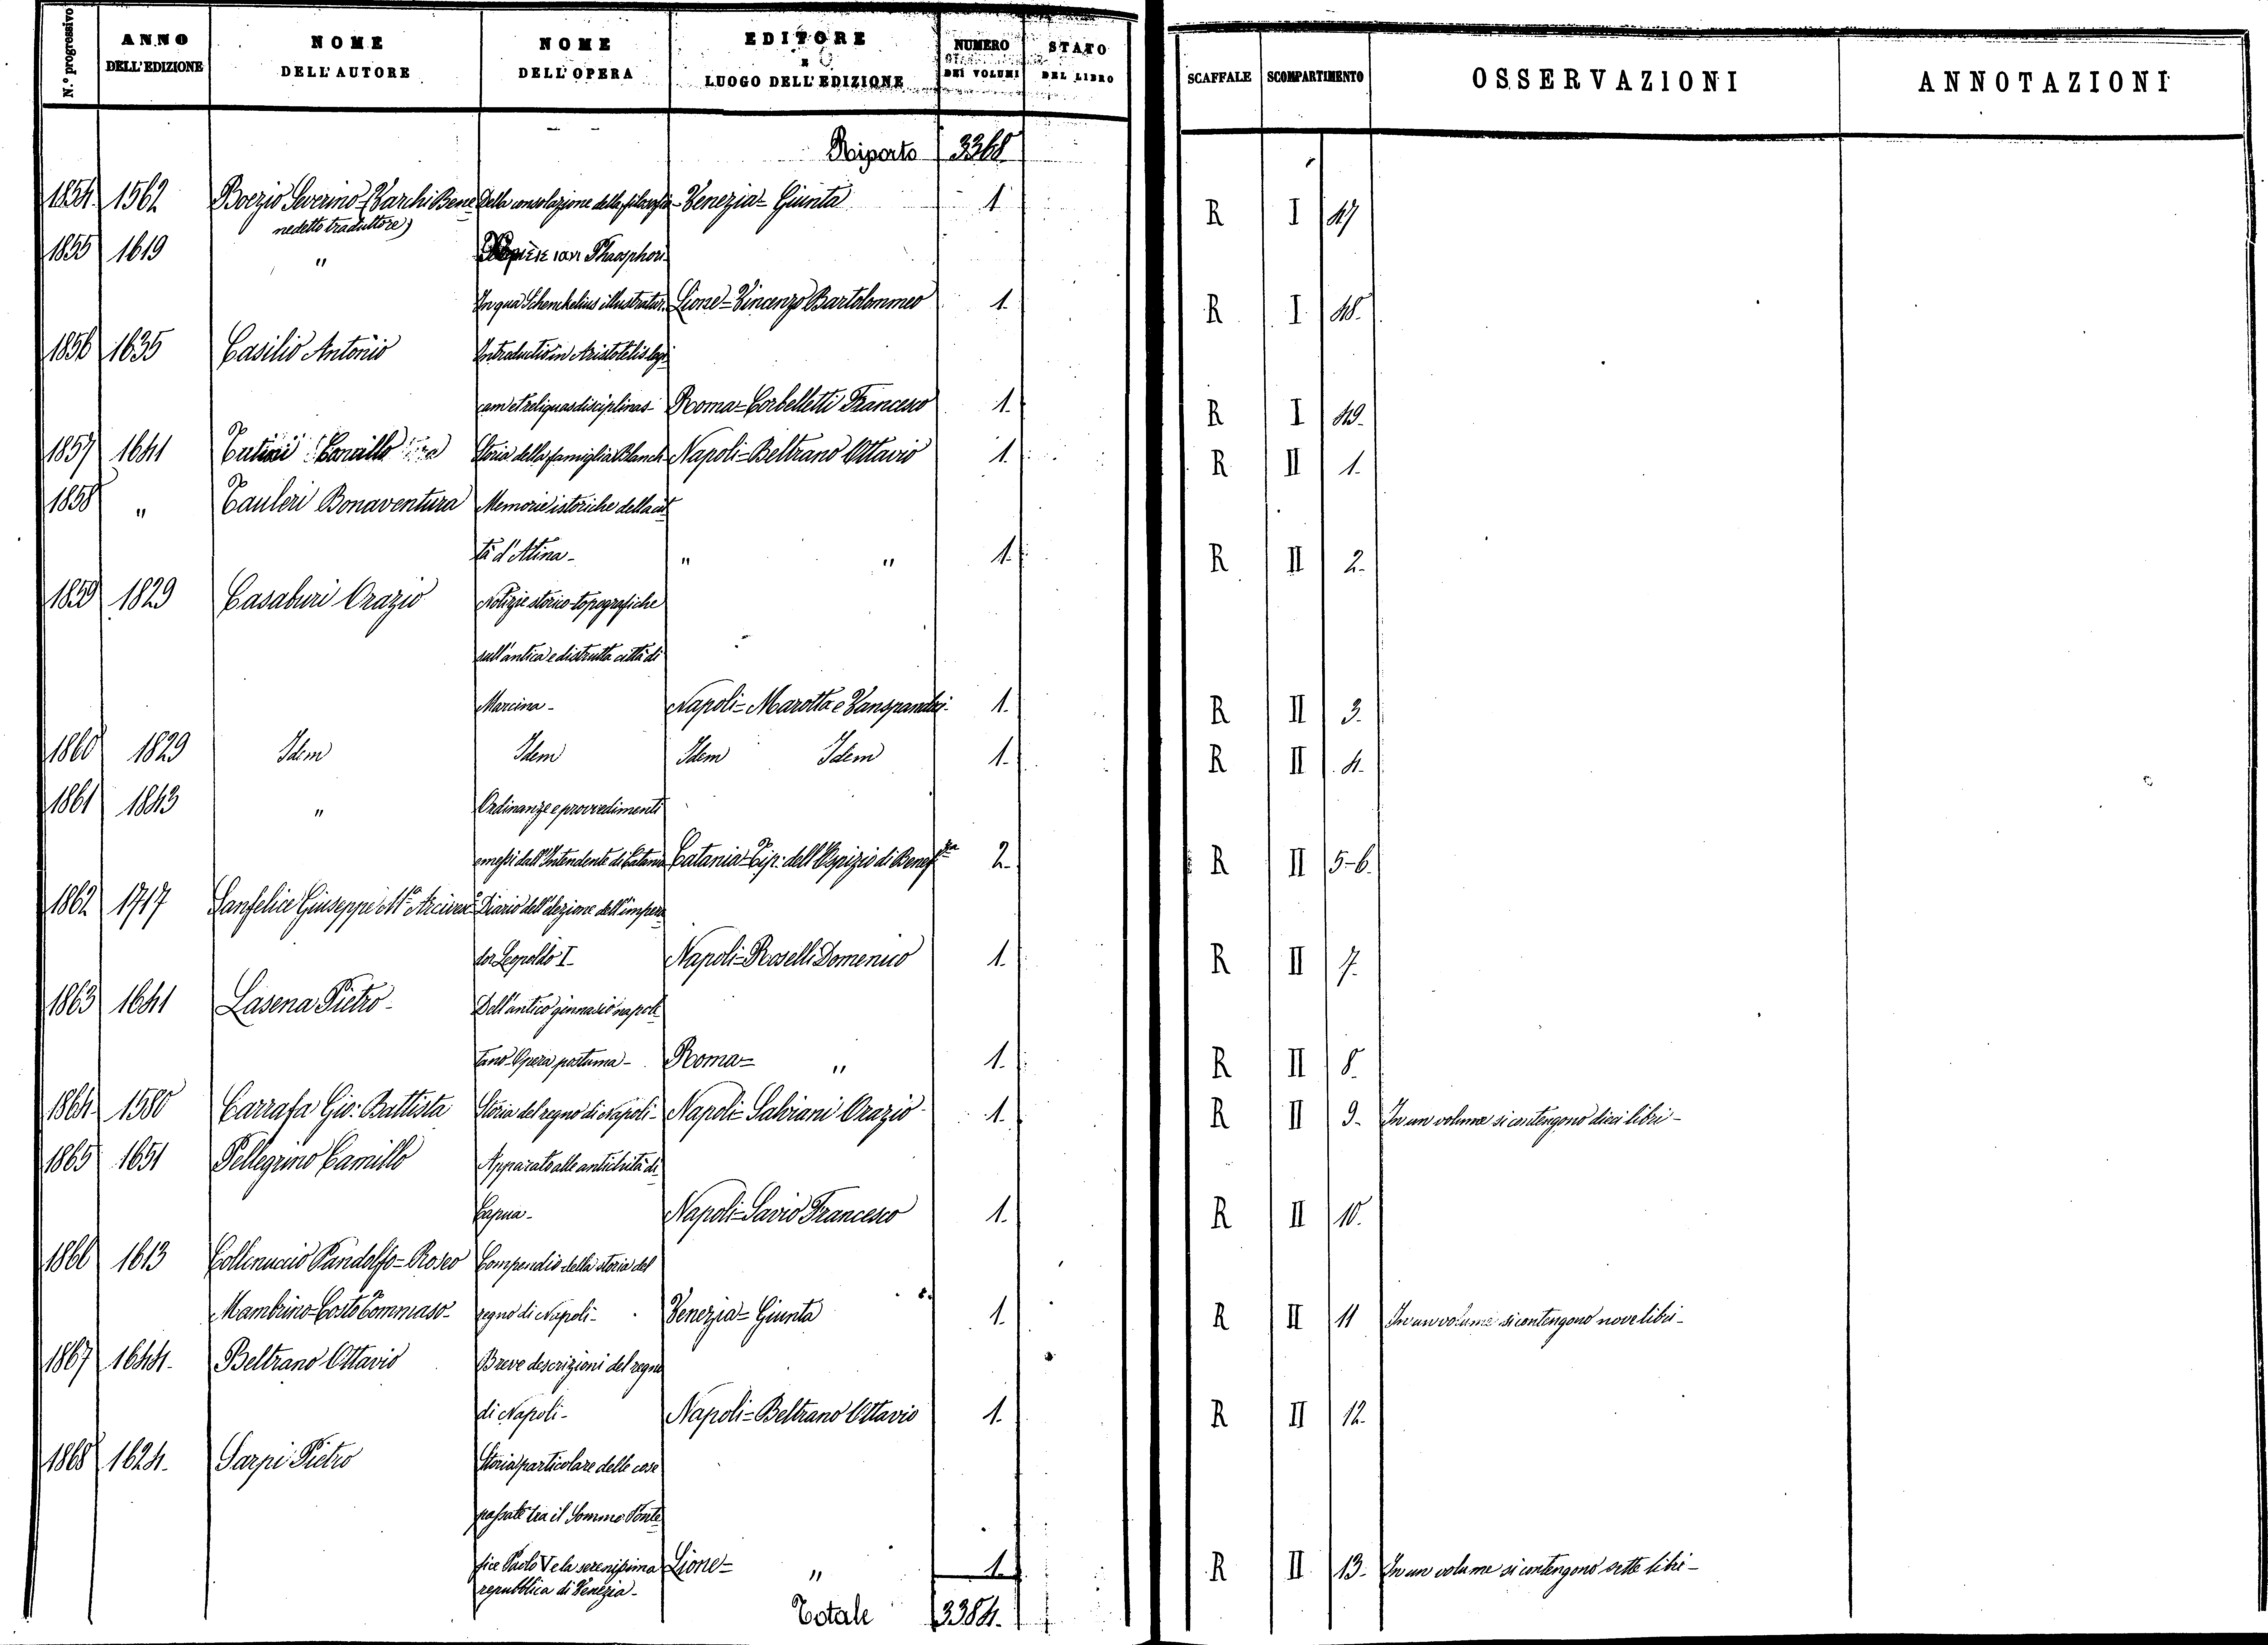 N.º progressivo ANNO DELL'EDIZIONE NOME DELL'AUTORE NOME DELL'OPERA EDITORE E LUOGO DELL'EDIZIONE NUMERO DEI VOLUMI STATO DEL LIBRO SCAFFALE SCOMPARTIMENTO OSSERVAZIONI ANNOTAZIONI
Riporto 3368
1854. 1562 Boezio Severino (Varchi Bene Della consolazione della filosofia - Venezia = Giunta 1 R I 47
nedetto traduttore)
1855 1619 " Phaosphori
In qua Schenkelius illustratur. Lione = Vincenzo Bartolommeo 1. R I 48.
1856 1635 Casilio Antonio Introductio in Aristotelis logi
cam et reliquas disciplinas - Roma = Corbelletti Francesco 1. R I 49.
1857 1641 Storia della famiglia Blanch Napoli = Beltrano Ottavio 1. R II 1.
1858 " Tauleri Bonaventura Memorie istoriche della cit
tà d'Atina - " " 1. R II 2.
1859 1829 Casaburi Orazio Notizie storico-topografiche
sull'antica e distrutta città di
Marcina - Napoli = Marotta e Vanspandoch 1. R II 3.
1860 1829 Idem Idem Idem Idem 1. R II 4.
1861 1843 " Ordinanze e provvedimenti
emessi dall'Intendente di Catania Catania = Tip. dell'Ospizio di Benef.za 2. R II 5-6.
1862 1717 Sanfelice Giuseppe Diario dell'elezione dell'impera
tor Leopoldo I - Napoli = Roselli Domenico 1. R II 7.
1863 1641 Lasena Pietro - Dell'antico ginnasio napole
tano - Opera postuma - Roma = " 1. R II 8.
1864. 1580 Carrafa Gio: Battista Storia del regno di Napoli - Napoli = Salviani Orazio - 1. R II 9. In un volume si contengono dieci libri -
1865 1651 Pellegrino Camillo Apparato alle antichità di
Capua - Napoli = Savio Francesco 1. R II 10.
1866 1613 Collenuccio Pandolfo = Roseo Compendio della storia del
Mambrino = Costo Tommaso - regno di Napoli - Venezia = Giunta 1. R II 11 In un volume si contengono nove libri -
1867 1644. Beltrano Ottavio Breve descrizioni del regno
di Napoli - Napoli = Beltrano Ottavio 1. R II 12.
1868 1624. Sarpi Pietro Storia particolare delle cose
passate tra il Sommo Ponte
fice Paolo V e la serenissima Lione = " 1. R II 13. In un volume si contengono sette libri -
repubblica di Venezia -
Totale 3384.